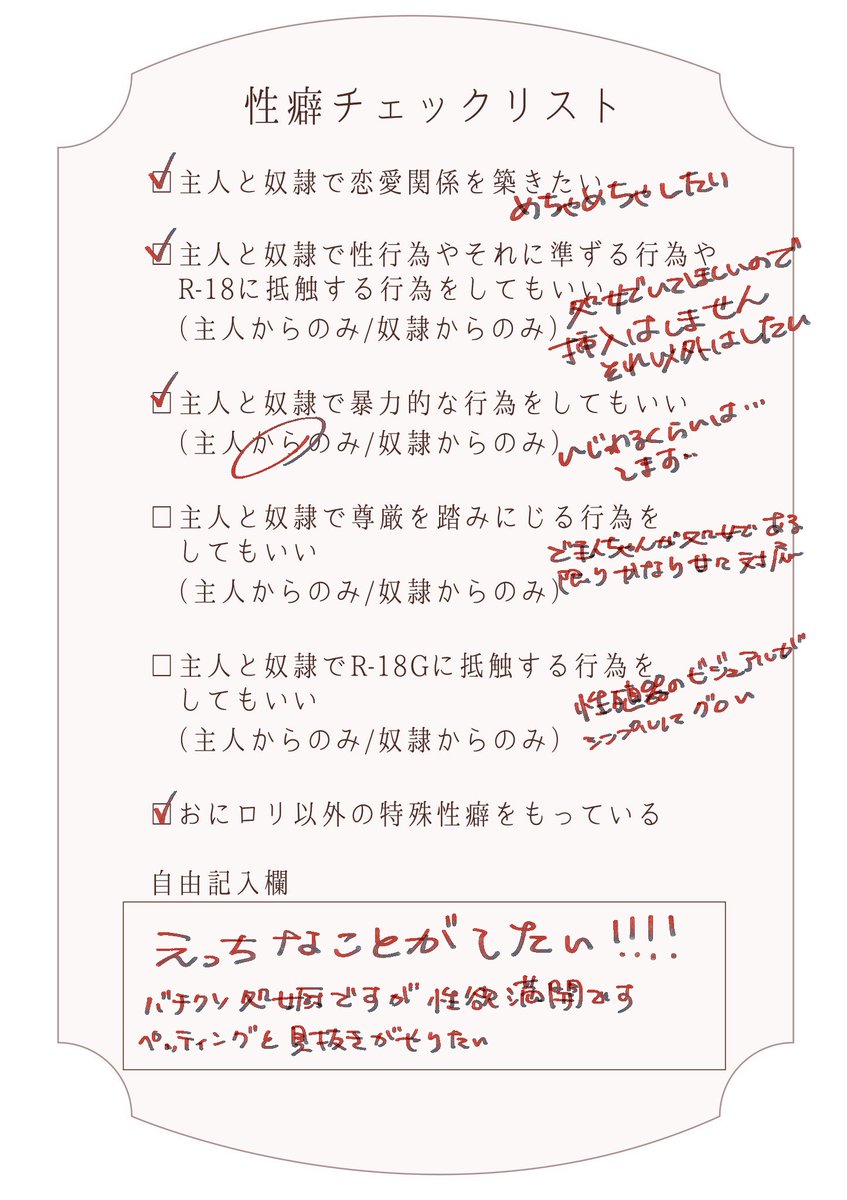 性癖チェックリスト
主人と奴隷で恋愛関係を築きたい
めちゃめちゃしたい
主人と奴隷で性行為やそれに準ずる行為や
R-18に抵触する行為をしてもいい
(主人からのみ/奴隷からのみ)
処女でいてほしいので
挿入はしません
それ以外はしたい
主人と奴隷で暴力的な行為をしてもいい
(主人からのみ/奴隷からのみ)
いじわるくらいは…
します…
主人と奴隷で尊厳を踏みにじる行為を
してもいい
(主人からのみ/奴隷からのみ)
ご主人ちゃんが処女である
限りかなり甘く対応
主人と奴隷でR-18Gに抵触する行為を
してもいい
(主人からのみ/奴隷からのみ)
のビジュアルが
シンプルにグロい
おにロリ以外の特殊性癖をもっている
自由記入欄
えっちなことがしたい!!!!
バチクソ処女厨ですが性欲満開です
ペッティングと見抜きがやりたい